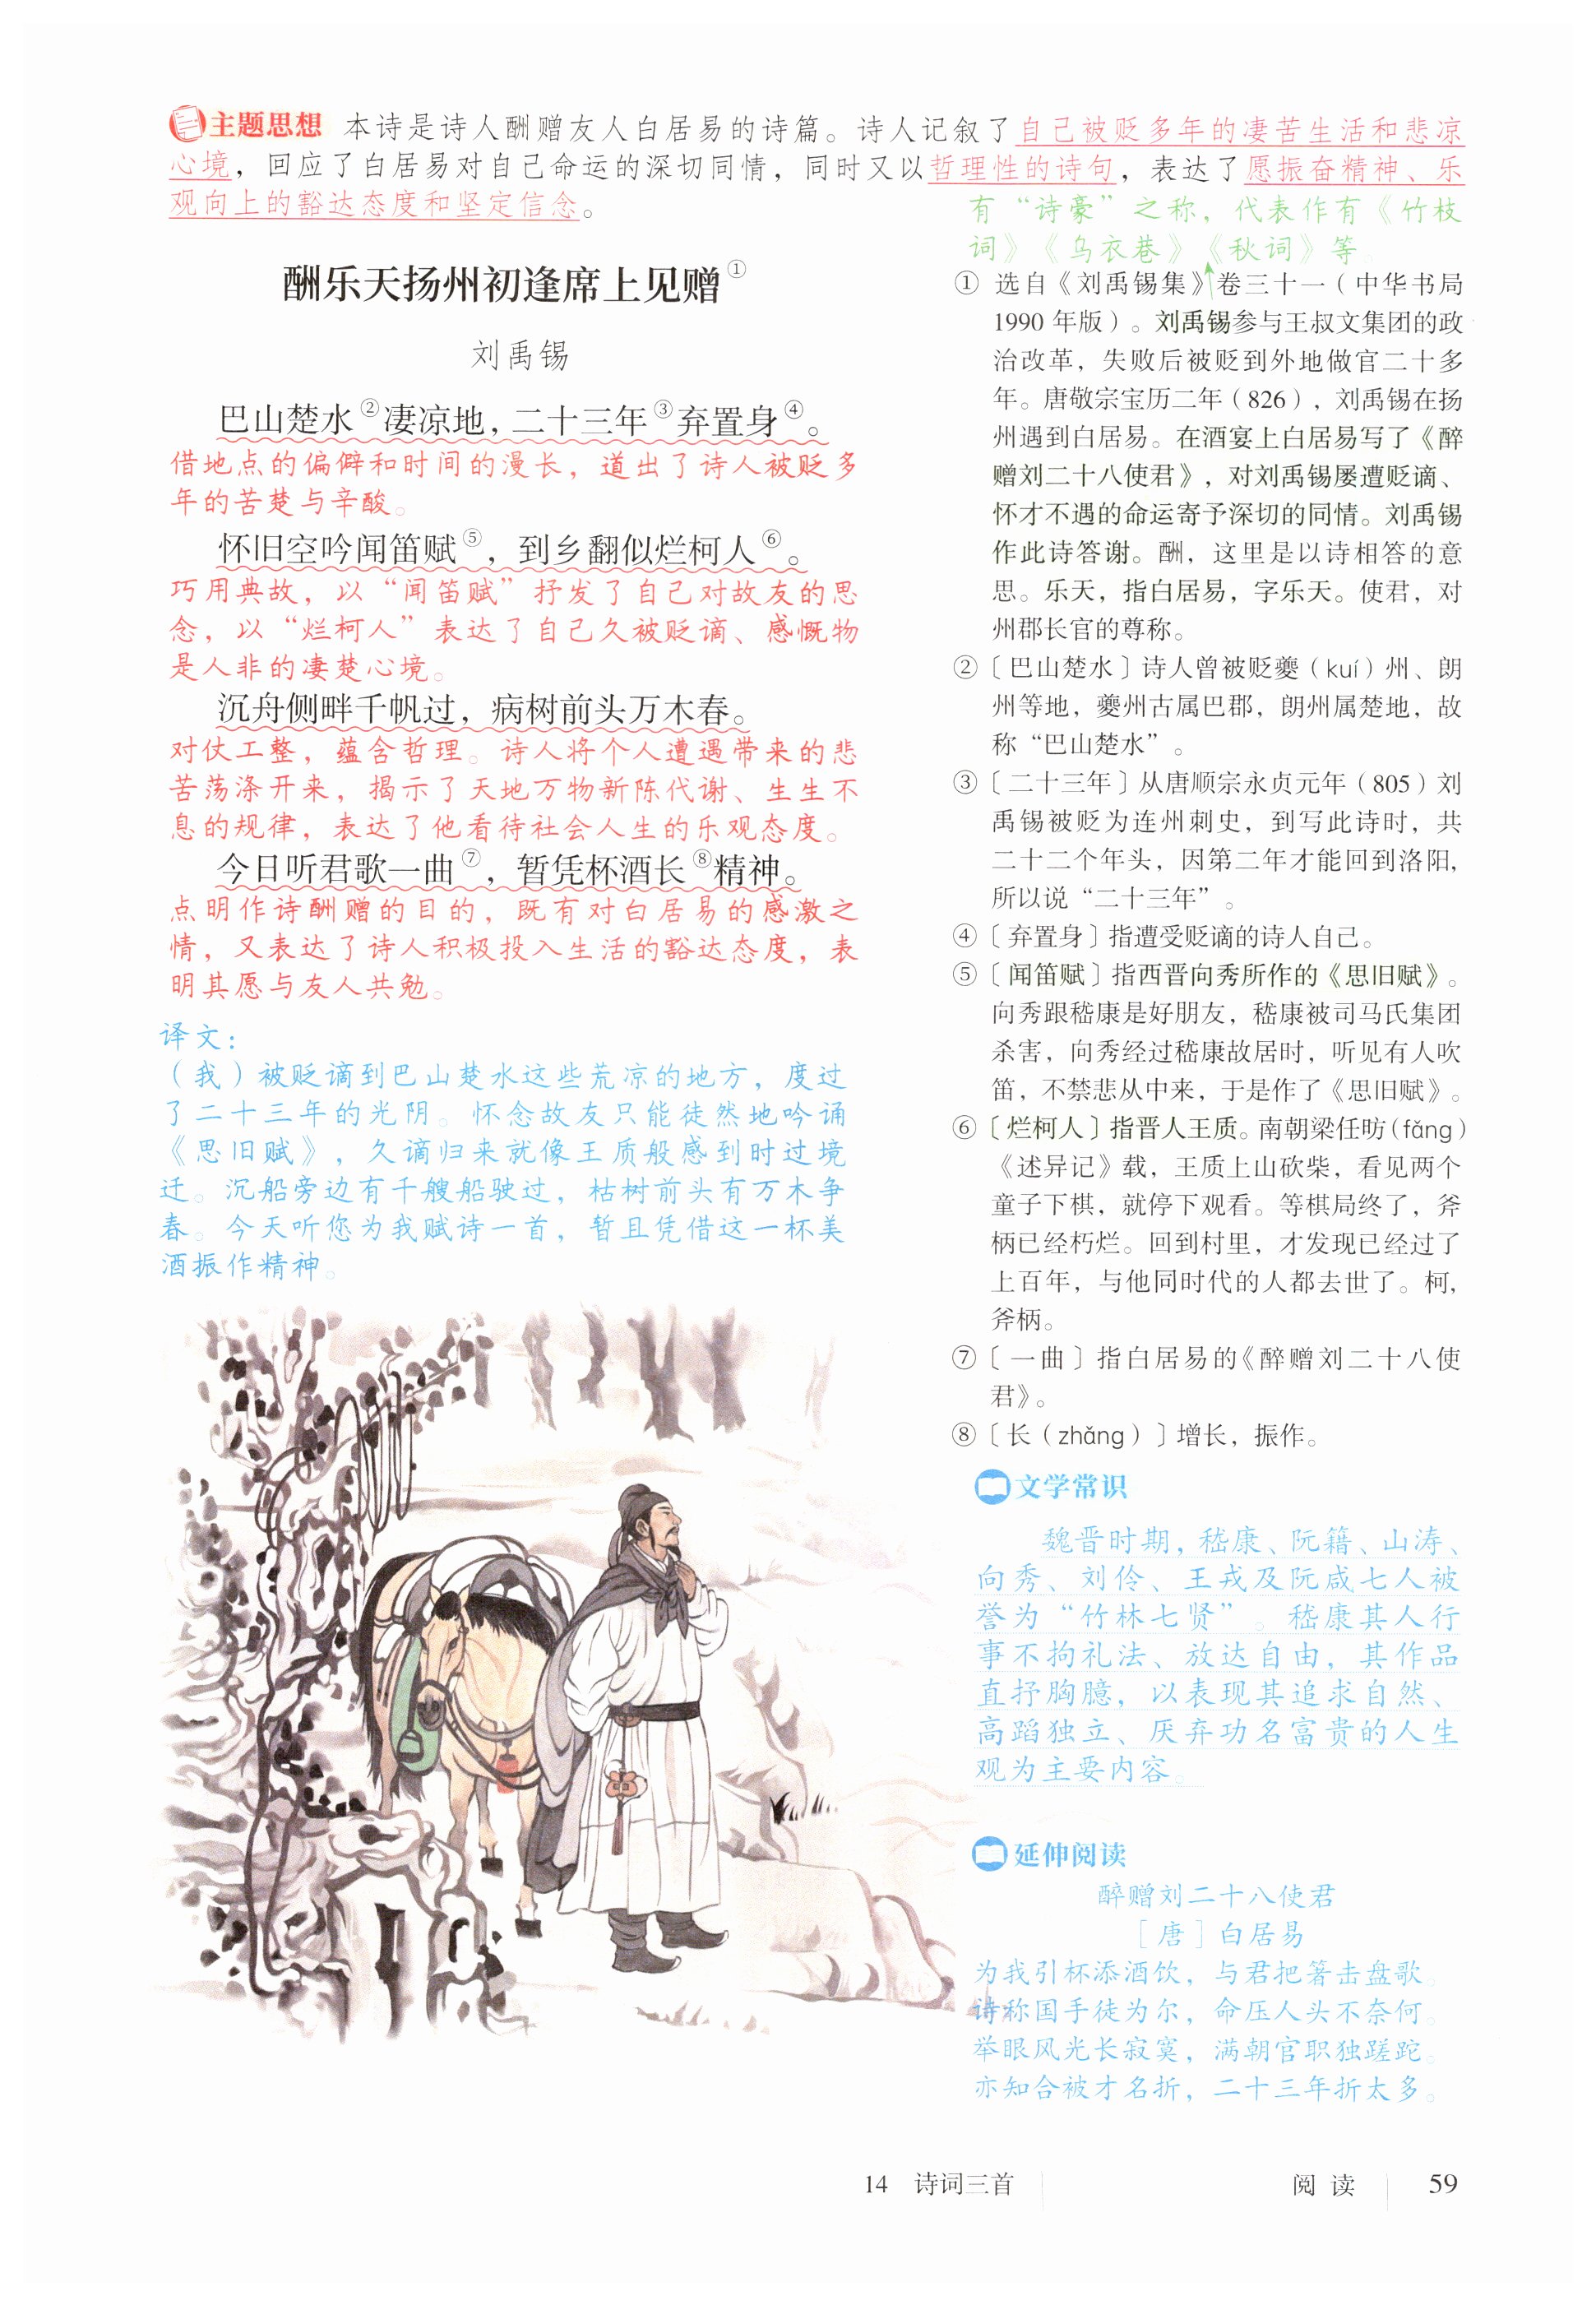 主题思想 本诗是诗人酬赠友人白居易的诗篇。诗人记叙了自己被贬多年的凄苦生活和悲凉
心境，回应了白居易对自己命运的深切同情，同时又以哲理性的诗句，表达了愿振奋精神、乐
观向上的豁达态度和坚定信念。
酬乐天扬州初逢席上见赠①
刘禹锡
巴山楚水②凄凉地，二十三年③弃置身④。
借地点的偏僻和时间的漫长，道出了诗人被贬多
年的苦楚与辛酸。
怀旧空吟闻笛赋⑤，到乡翻似烂柯人⑥。
巧用典故，以“闻笛赋”抒发了自己对故友的思
念，以“烂柯人”表达了自己久被贬谪、感慨物
是人非的凄楚心境。
沉舟侧畔千帆过，病树前头万木春。
对仗工整，蕴含哲理。诗人将个人遭遇带来的悲
苦荡涤开来，揭示了天地万物新陈代谢、生生不
息的规律，表达了他看待社会人生的乐观态度。
今日听君歌一曲⑦，暂凭杯酒长⑧精神。
点明作诗酬赠的目的，既有对白居易的感激之
情，又表达了诗人积极投入生活的豁达态度，表
明其愿与友人共勉。
译文：
（我）被贬谪到巴山楚水这些荒凉的地方，度过
了二十三年的光阴。怀念故友只能徒然地吟诵
《思旧赋》，久谪归来就像王质般感到时过境
迁。沉船旁边有千艘船驶过，枯树前头有万木争
春。今天听您为我赋诗一首，暂且凭借这一杯美
酒振作精神。
有“诗豪”之称，代表作有《竹枝
词》《乌衣巷》《秋词》等。
① 选自《刘禹锡集》卷三十一（中华书局
1990 年版）。刘禹锡参与王叔文集团的政
治改革，失败后被贬到外地做官二十多
年。唐敬宗宝历二年（826），刘禹锡在扬
州遇到白居易。在酒宴上白居易写了《醉
赠刘二十八使君》，对刘禹锡屡遭贬谪、
怀才不遇的命运寄予深切的同情。刘禹锡
作此诗答谢。酬，这里是以诗相答的意
思。乐天，指白居易，字乐天。使君，对
州郡长官的尊称。
②〔巴山楚水〕诗人曾被贬夔（kuí）州、朗
州等地，夔州古属巴郡，朗州属楚地，故
称“巴山楚水”。
③〔二十三年〕从唐顺宗永贞元年（805）刘
禹锡被贬为连州刺史，到写此诗时，共
二十二个年头，因第二年才能回到洛阳，
所以说“二十三年”。
④〔弃置身〕指遭受贬谪的诗人自己。
⑤〔闻笛赋〕指西晋向秀所作的《思旧赋》。
向秀跟嵇康是好朋友，嵇康被司马氏集团
杀害，向秀经过嵇康故居时，听见有人吹
笛，不禁悲从中来，于是作了《思旧赋》。
⑥〔烂柯人〕指晋人王质。南朝梁任昉（fǎng）
《述异记》载，王质上山砍柴，看见两个
童子下棋，就停下观看。等棋局终了，斧
柄已经朽烂。回到村里，才发现已经过了
上百年，与他同时代的人都去世了。柯，
斧柄。
⑦〔一曲〕指白居易的《醉赠刘二十八使
君》。
⑧〔长（zhǎng）〕增长，振作。
文学常识
魏晋时期，嵇康、阮籍、山涛、
向秀、刘伶、王戎及阮咸七人被
誉为“竹林七贤”。嵇康其人行
事不拘礼法、放达自由，其作品
直抒胸臆，以表现其追求自然、
高蹈独立、厌弃功名富贵的人生
观为主要内容。
延伸阅读
醉赠刘二十八使君
［唐］白居易
为我引杯添酒饮，与君把箸击盘歌。
诗称国手徒为尔，命压人头不奈何。
举眼风光长寂寞，满朝官职独蹉跎。
亦知合被才名折，二十三年折太多。
14 诗词三首 阅读 59